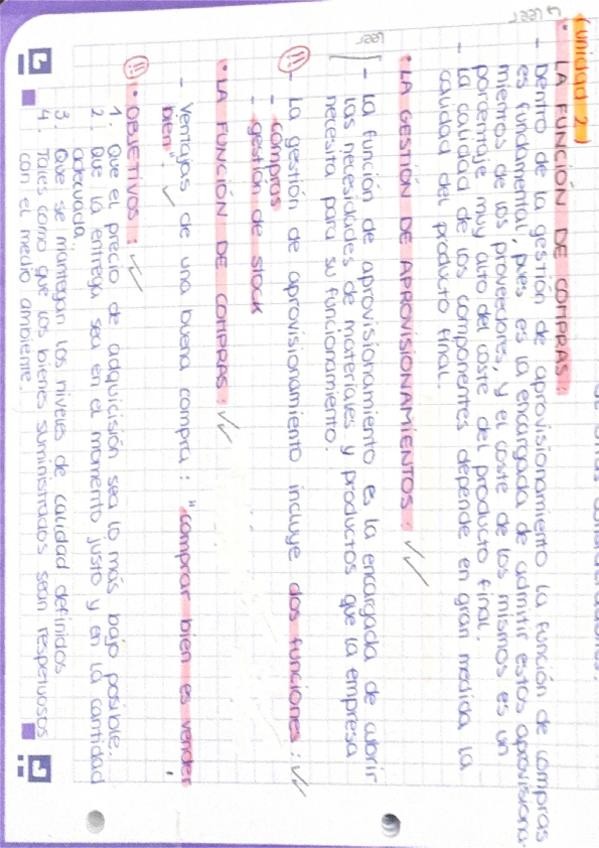 (Unidad 2)
↳ leer
• LA FUNCIÓN DE COMPRAS:
- Dentro de la gestión de aprovisionamiento la función de compras
es fundamental, pues es la encargada de admitir estos aprovisiona-
mientos de los proveedores, y el coste de los mismos es un
porcentaje muy alto del coste del producto final.
- La calidad de los componentes depende en gran medida la
calidad del producto final.
• LA GESTIÓN DE APROVISIONAMIENTOS:
leer
- La función de aprovisionamiento es la encargada de cubrir
las necesidades de materiales y productos que la empresa
necesita para su funcionamiento.
(!!) - La gestión de aprovisionamiento incluye dos funciones:
- compras
- gestión de stock
• LA FUNCIÓN DE COMPRAS:
- Ventajas de una buena compra: "comprar bien es vender
bien".
(!!) • OBJETIVOS:
1. Que el precio de adquicisión sea lo más bajo posible.
2. Que la entrega sea en el momento justo y en la cantidad
adecuada.
3. Que se mantegan los niveles de calidad definidos
4. Tales como que los bienes suministrados sean respetuosos
con el medio ambiente.